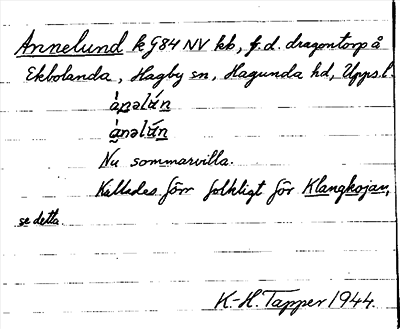 Annelund k G84 NV kb, f.d. dragontorp å
Ekbolanda, Hagby sn, Hagunda hd, Upps.l.
ànəlún
ánəlún
Nu sommarvilla.
Kallades förr folkligt för Klangkojan,
se detta.
K-H. Tapper 1944.